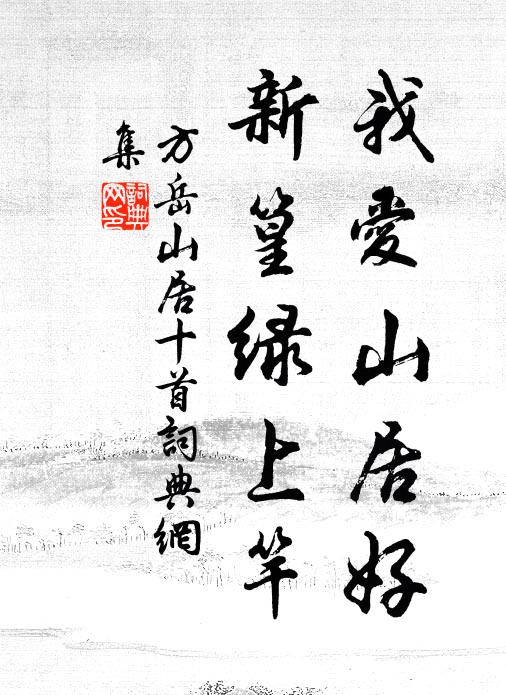 我愛山居好
新篁綠上竿
方岳山居十首詞典網
集
詞典
网印